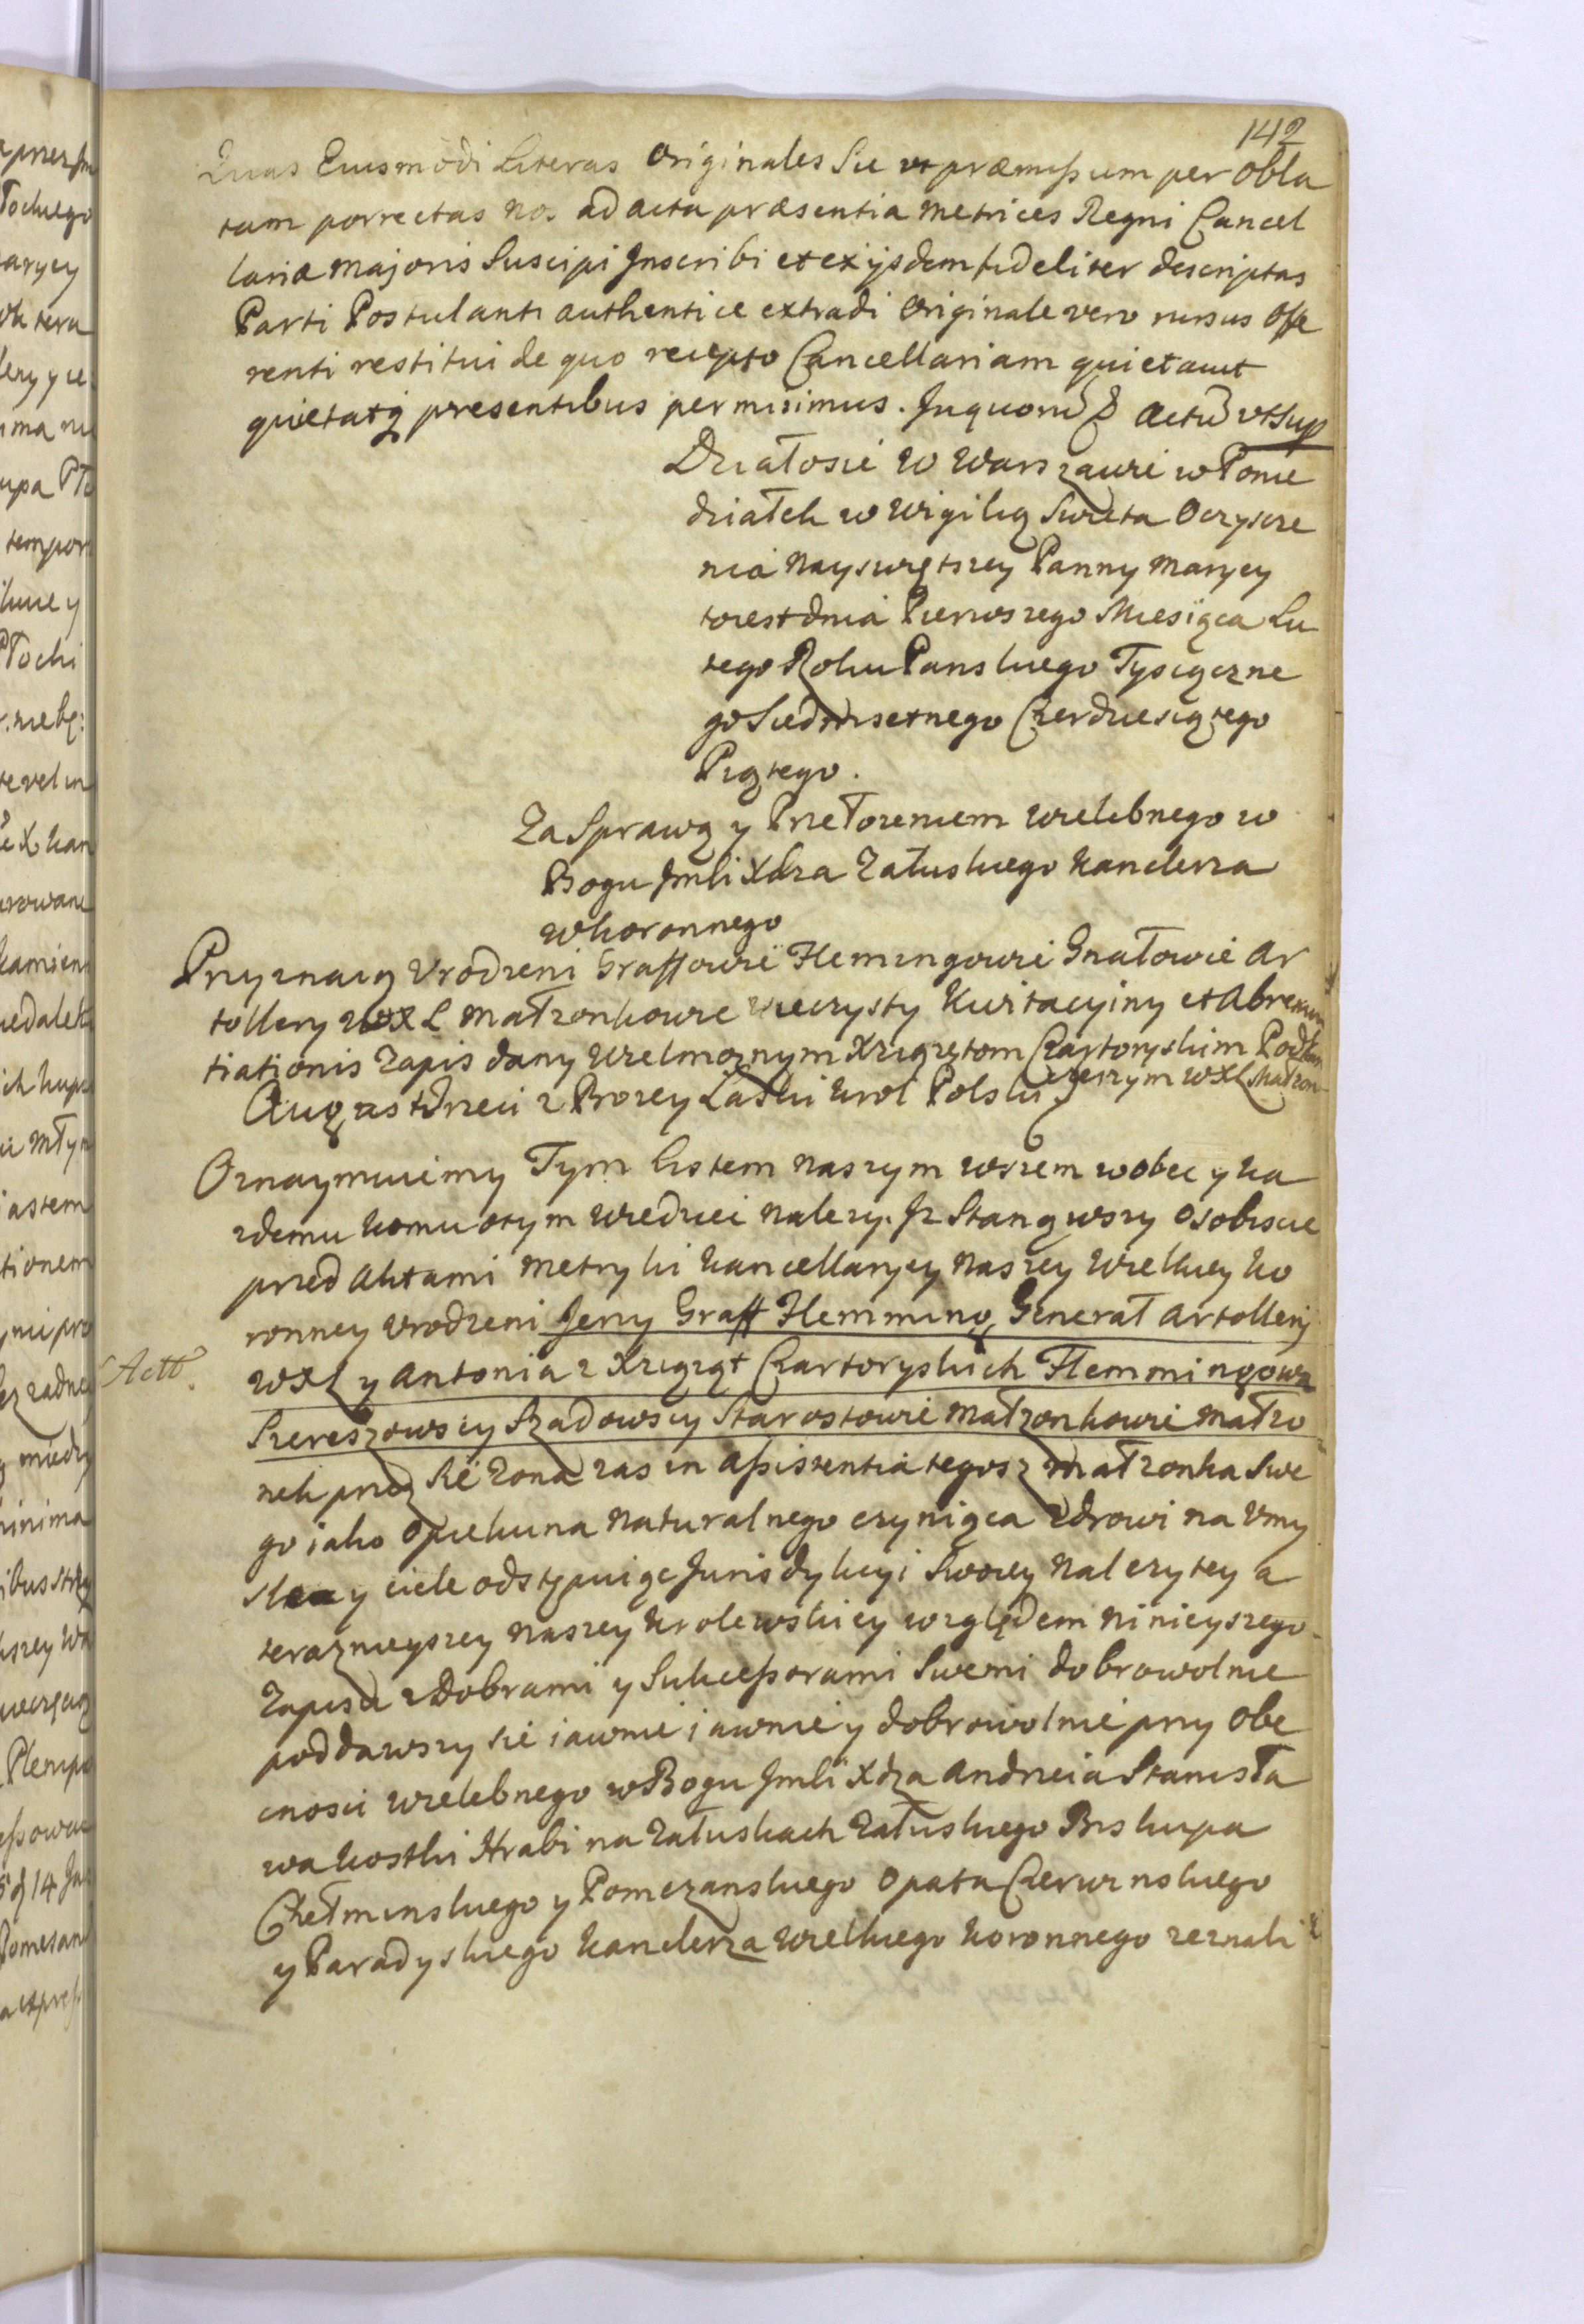 142
Quas Eiusmodi Literas Originales Sic ut præmissum per Obla
tam porrectas Nos ad acta præsentia Metrices Regni Cancel
lariæ Majoris Suscipi Inscribi et ex ijsdem fideliter descriptas
Parti Postulanti authentice extradi Originale vero rursus Offe
renti restitui de quo recepto Cancellariam quietavit
quietatq presentibus permisimus. In quorũ Actũ vt Sup
Działo sie w Warszawie w Ponie
działek w Wigilią Swieta Oczyszcze
nia Nayswiętszey Panny Maryey
to iest dnia Pierwszego Miesiąca Lu
tego Roku Panskiego Tysiączne
go Siedmsetnego Czerdziesiątego
Piątego.
Za Sprawą y Przełozeniem Wielebnego w
Bogu Jmśi Xdza Załuskiego Kanclerza
W Koronnego
Przyznaią Vrodzeni Graffowie Flemingowie Gnałowie Ar
tollery WXL Małzonkowie wieczysty Kwitacyiny et Abrenun
tiationis Zapis dany Wielmoznym Xziązętom Czartoryskim Podkan
clerzym WXL Małzon
August Trzeci z Bozey Łaski Krol Polski
Oznaymuiemy Tym Listem Naszym wszem wobec y ka
zdemu komu otym wiedziec nalezy. Iz Stanąwszy Osobiscie
przed Aktami Metryki Kancellaryey Naszey Wielkiey Ko
ronney Vrodzeni Jerzy Graff Flemming Generał Artollerij
WXL y Antonia z Xziąząt Czartoryskich Flemmingowa
Actt.
Szereszowscy Szadowscy Starostowie Małzonkowie Małzo
nek przez Sie Zona zas in assistentia tegosz Małzonka Swe
go iako Opiekuna Naturalnego czyniąca Zdrowi na Vmy
sle y ciele odstępuiąc Jurisdykcyi Swoiey Nalezytey a
teraznieyszey Naszey Krolewskiey względem Ninieyszego
Zapisu z Dobrami y Sukcessorami Swemi dobrowolnie
poddawszy sie iawnie iawnie y dobrowolnie przy Obe
cnosci Wielebnego w Bogu Jmśi Xdza Andrzeia Stanisła
wa Kostki Hrabi na Załuskach Załuskiego Biskupa
Chełminskiego y Pomezanskiego Opata Czerwinskiego
y Paradyskiego Kanclerza Wielkiego Koronnego zeznali